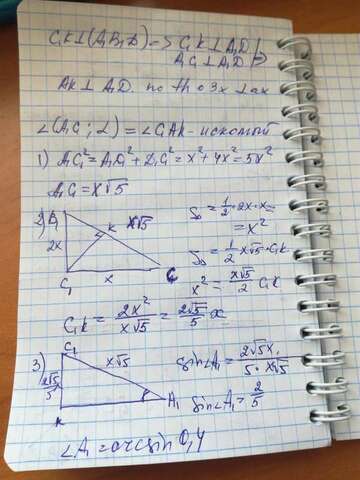 C₁K⊥(A₁B₁D) => C₁K⊥A₁D
A₁C⊥A₁D
AK⊥A₁D. по th о 3х ⊥ах
∠(A₁C; α) = ∠C₁AK - искомый
1) A₁C₁² = A₁D₁² + D₁C₁² = x² + 4x² = 5x²
A₁C₁ = x√5
2) D₁ K x√5
2x
C₁ x C
S₀ = 1/2 · 2x · x = x²
S₀ = 1/2 x√5 · C₁K
x² = x√5/2 C₁K
C₁K = 2x²/x√5 = 2√5/5 x
3) C₁ x√5
2√5/5
K A₁
sin∠A₁ = 2√5x/5·x√5
sin∠A₁ = 2/5
∠A₁ = arcsin 0,4